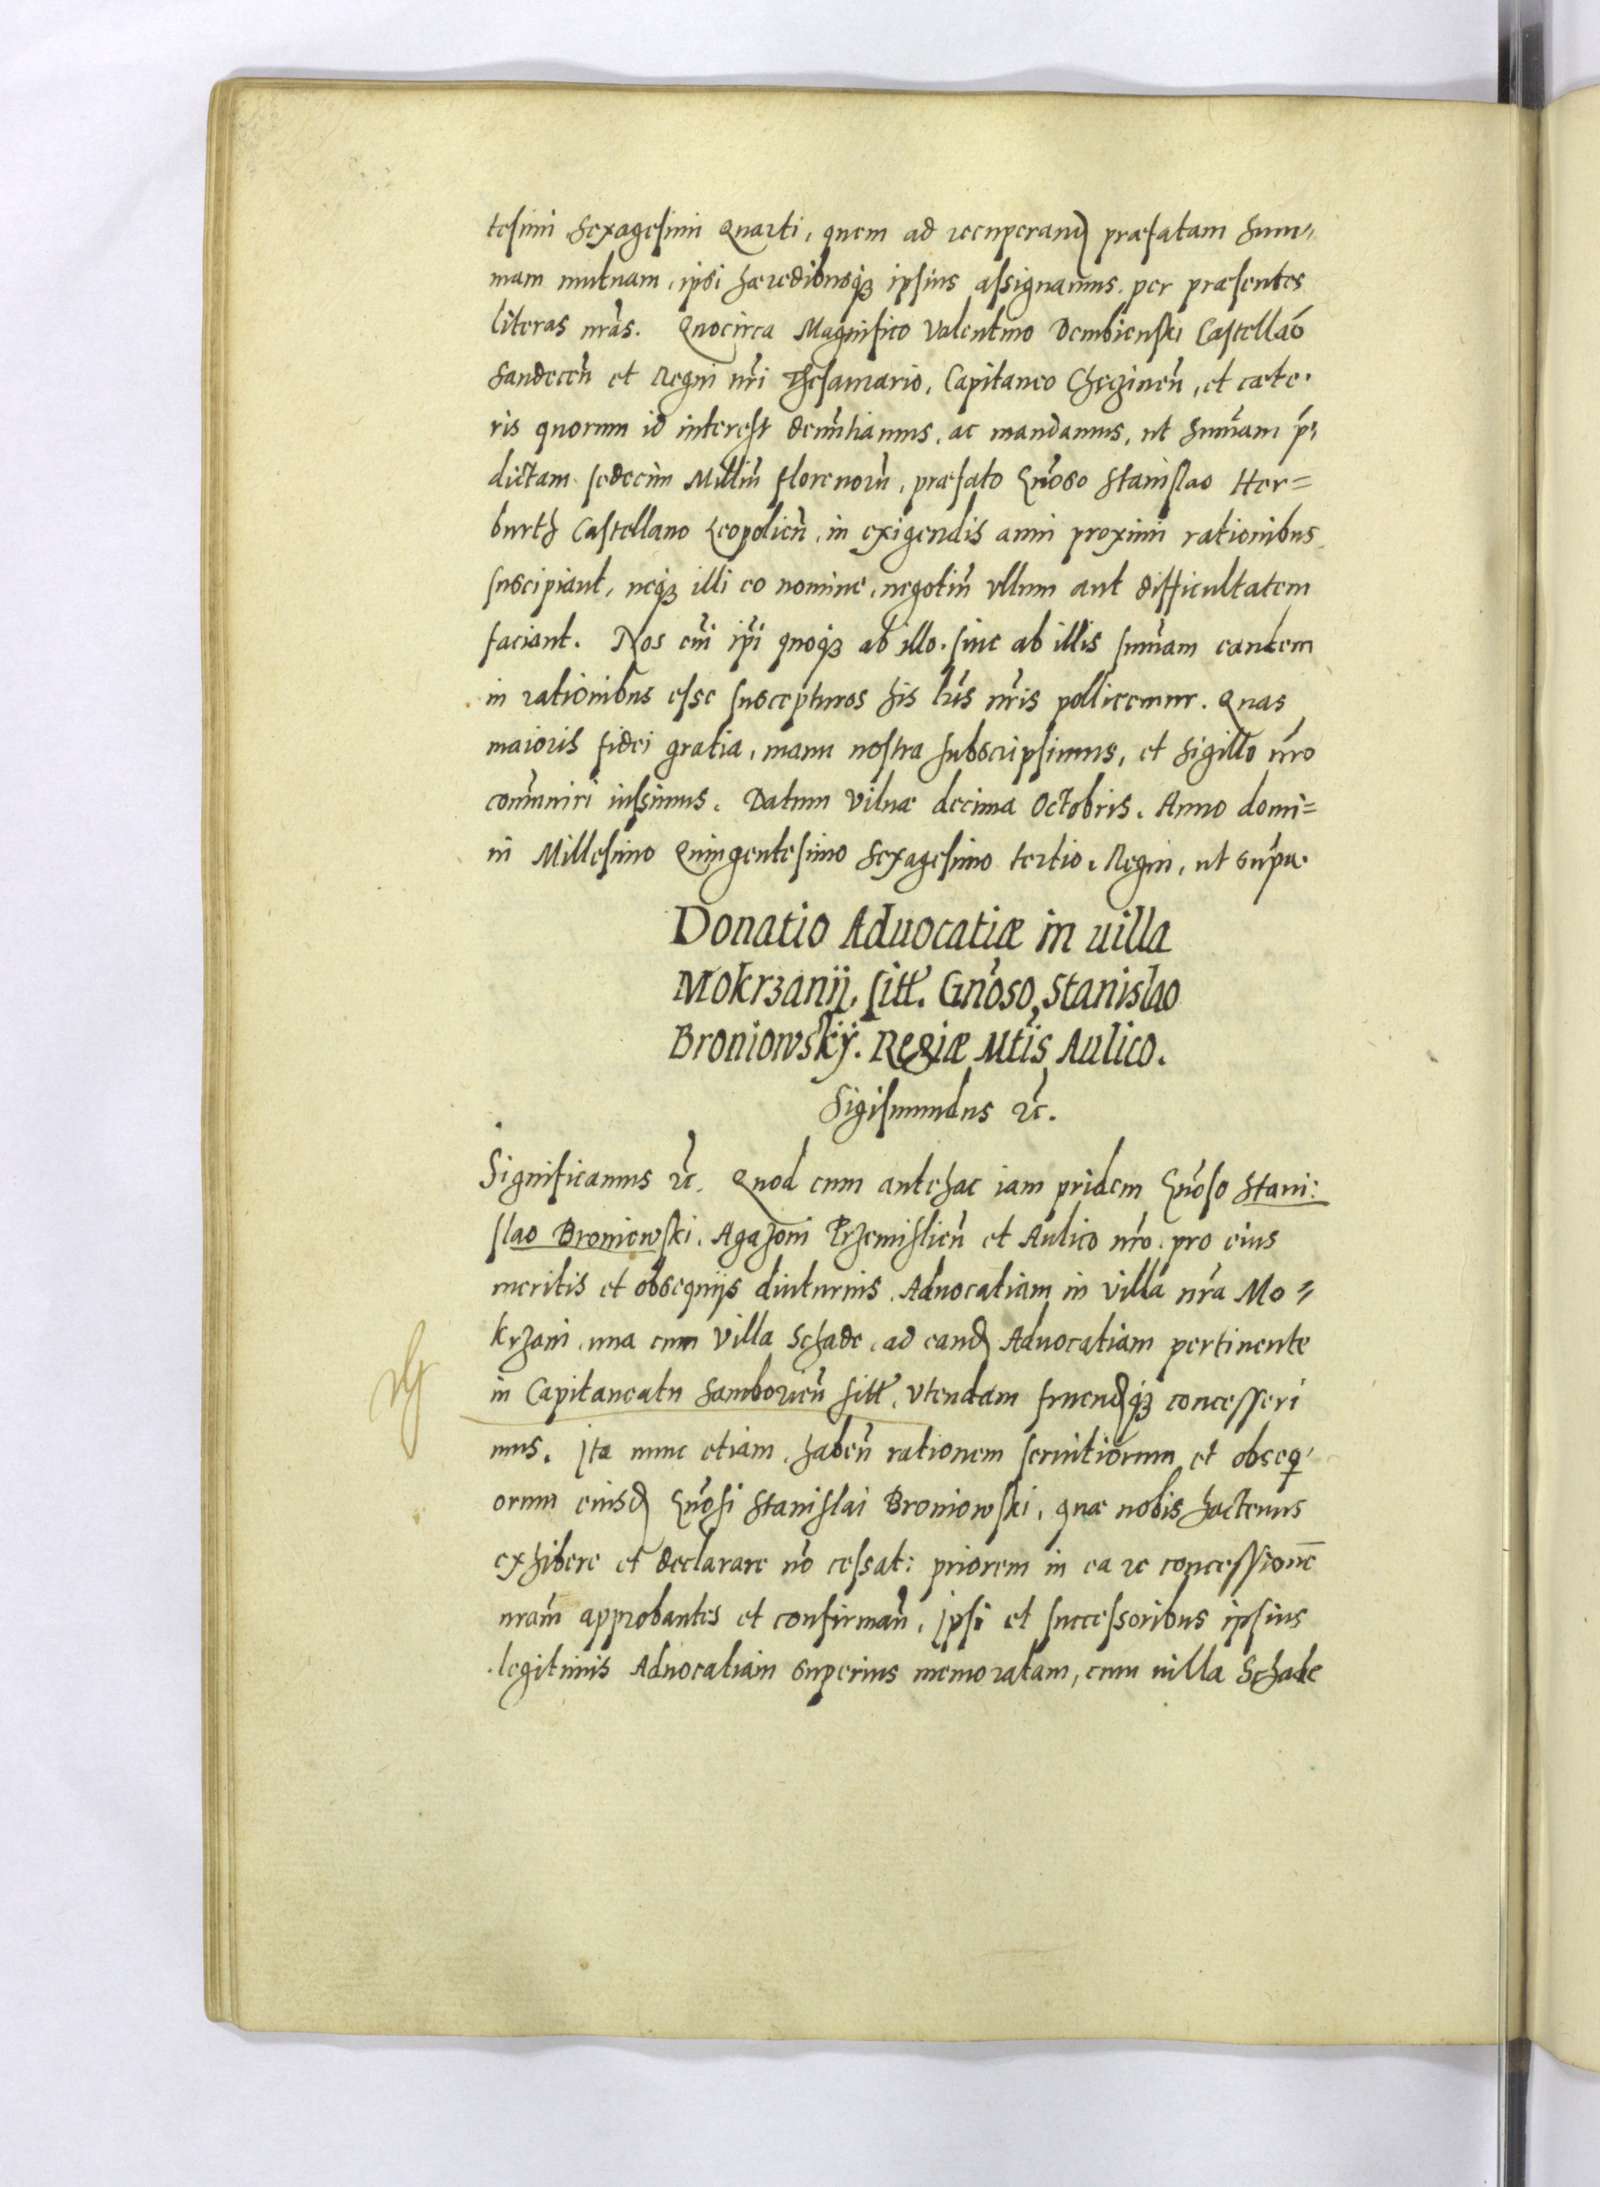 tesimi Sexagesimi Quarti, quem ad recuperand præfatam Sum=
mam mutuam, ipsi hæredibusq3 ipsius assignamus per præsentes
literas nr̃as. Quocirca Magnifico Valentino Dembienski Castellão
Sandecen̄ et Regni nr̃i Thesaurario, Capitaneo Chęcinen̄, et cæte.
ris quorum id interest denun̄tiamus, ac mandamus, ut Sum̄am p̃=
dictam sedecim Milliū florenorū, præfato Gn̄oso Stanislao Her=
burth Castellano Leopolien̄, in exigendis anni proximi rationibus
suscipiant, neq3 illi eo nomine, negotiū ullum aut difficultatem
faciant. Nos em̄ ip̄i quoq3 ab illo. siue ab illis sum̄am eandem
in rationibus esse suscepturos his lr̃is nr̃is pollicemur. Quas
maioris fidei gratia, manu nostra subscripsimus, et Sigillo nr̃o
com̄uniri iussimus. Datum Vilnæ decima Octobris. Anno domi=
ni Millesimo Quingentesimo Sexagesimo tertio. Regni, ut supra.
Donatio Aduocatiæ in uilla
Mokrzanij, sitt. Gn̄oso, Stanislao
Broniowskÿ. Regiæ Mtis Aulico.
Sigismundus &c̄.
Significamus &c̄. Quod cum antehac iam pridem Gn̄oso Stani:
slao Broniowski, Agazoni Przemislien̄ et Aulico nr̃o pro eius
meritis et obsequijs diuturnis, Aduocatiam in villa nr̃a Mo=
krzani, una cum Villa Schade, ad eand Aduocatiam pertinente
in Capitaneatu Samborien̄ sitt, Vtendam fruendq3 concesseri
mus. Ita nunc etiam, haben̄ rationem seruitiorum et obseq
orum eiusd Gn̄osi Stanislai Broniowski, quæ nobis hactenus
exhibere et declarare nō cessat: priorem in ea re concessionē
nram̄ approbantes et confirman̄, Ipsi et successoribus ipsius
legitimis Aduocatiam superius memoratam, cum uilla Schade